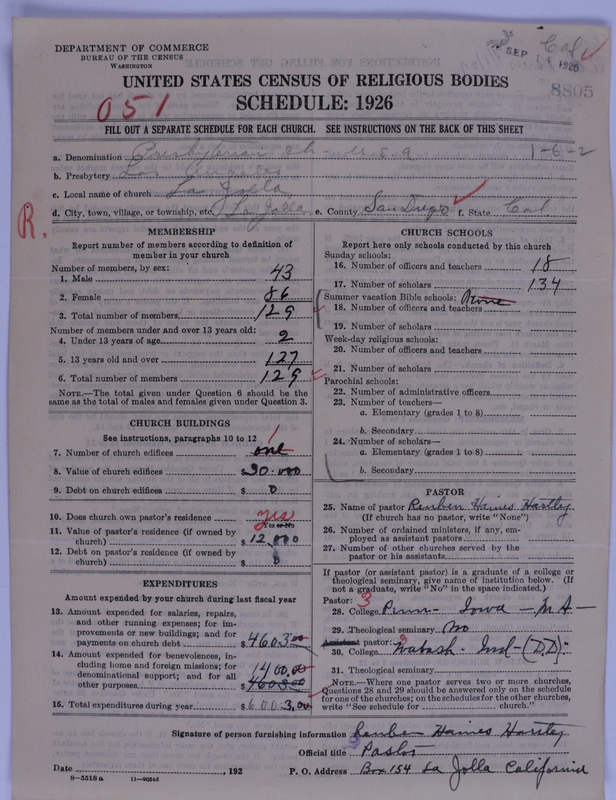 DEPARTMENT OF COMMERCE
BUREAU OF THE CENSUS
WASHINGTON
SEP 1926
Cal
8805
UNITED STATES CENSUS OF RELIGIOUS BODIES
SCHEDULE: 1926
051
FILL OUT A SEPARATE SCHEDULE FOR EACH CHURCH. SEE INSTRUCTIONS ON THE BACK OF THIS SHEET
a. Denomination Presbyterian ch - U.S.a 1-6-2
b. Presbytery Los Angeles
c. Local name of church La Jolla
d. City, town, village, or township, etc. La Jolla e. County San Diego f. State Cal
R.
MEMBERSHIP
Report number of members according to definition of
member in your church
Number of members, by sex:
1. Male 43
2. Female 86
3. Total number of members 129
Number of members under and over 13 years old:
4. Under 13 years of age 2
5. 13 years old and over 127
6. Total number of members 129
NOTE.—The total given under Question 6 should be
same as the total of males and females given under Question 3.
CHURCH BUILDINGS
See instructions, paragraphs 10 to 12
7. Number of church edifices one 1
8. Value of church edifices $ 30.000
9. Debt on church edifices $ 0
10. Does church own pastor's residence yes
Yes or No
11. Value of pastor's residence (if owned by
church) $ 12,000
12. Debt on pastor's residence (if owned by
church) $ 0
EXPENDITURES
Amount expended by your church during last fiscal year
13. Amount expended for salaries, repairs,
and other running expenses; for im-
provements or new buildings; and for
payments on church debt $ 4603.00
14. Amount expended for benevolences, in-
cluding home and foreign missions; for
denominational support; and for all
other purposes $ 1400.00
4603.00
15. Total expenditures during year $ 6003.00
CHURCH SCHOOLS
Report here only schools conducted by this church
Sunday schools:
16. Number of officers and teachers 18
17. Number of scholars 134
Summer vacation Bible schools: None
18. Number of officers and teachers
19. Number of scholars
Week-day religious schools:
20. Number of officers and teachers
21. Number of scholars
Parochial schools:
22. Number of administrative officers
23. Number of teachers—
a. Elementary (grades 1 to 8)
b. Secondary
24. Number of scholars—
a. Elementary (grades 1 to 8)
b. Secondary
PASTOR
25. Name of pastor Reuben Haines Hartley
(If church has no pastor, write "None")
26. Number of ordained ministers, if any, em-
ployed as assistant pastors
27. Number of other churches served by the
pastor or his assistants
If pastor (or assistant pastor) is a graduate of a college or
theological seminary, give name of institution below. (If
not a graduate, write "No" in the space indicated.)
Pastor: 3
28. College Penn- Iowa - M.A-
29. Theological seminary No
Assistant pastor: 3
30. College Wabash - Ind - (D.D)-
31. Theological seminary
NOTE.—Where one pastor serves two or more churches,
Questions 28 and 29 should be answered only on the schedule
for one of the churches; on the schedules for the other churches,
write "See schedule for church."
Signature of person furnishing information Reuben Haines Hartley
Official title Pastor
Date , 192 P. O. Address Box 154 La Jolla California
8-5518a